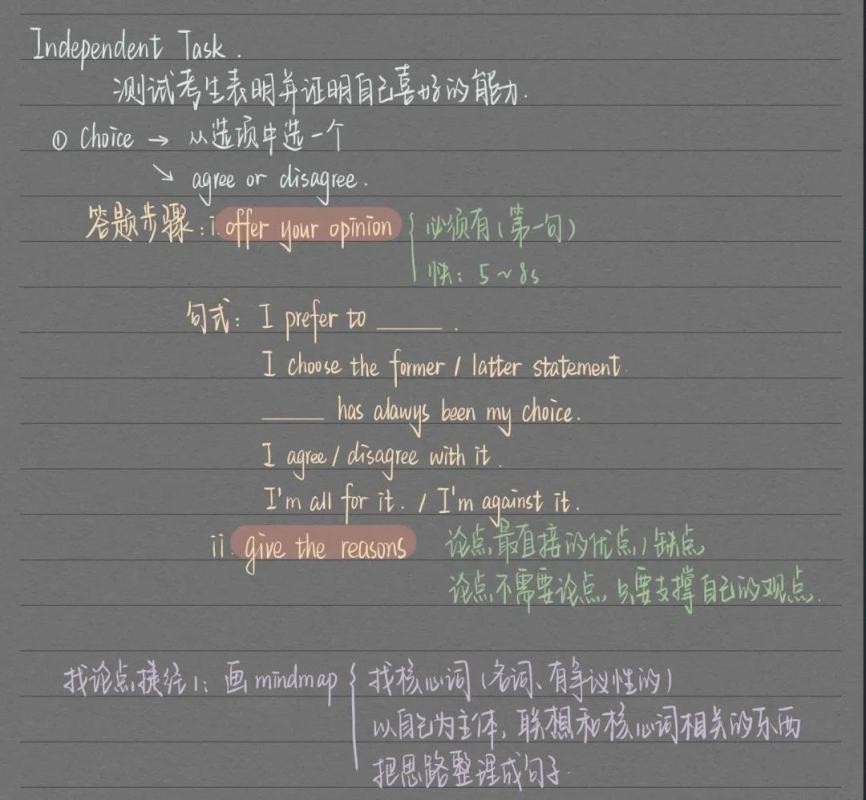 Independent Task.
测试考生表明并证明自己喜好的能力.
① Choice → 从选项中选一个
↘ agree or disagree.
答题步骤: i. offer your opinion { 必须有(第一句)
快: 5~8s
句式: I prefer to ____ .
I choose the former / latter statement.
____ has alawys been my choice.
I agree / disagree with it.
I'm all for it. / I'm against it.
ii. give the reasons 论点最直接的优点/缺点
论点不需要论点, 只要支撑自己的观点.
找论点捷径1: 画mindmap { 找核心词(名词、有争议性的)
以自己为主体, 联想和核心词相关的东西
把思路整理成句子.